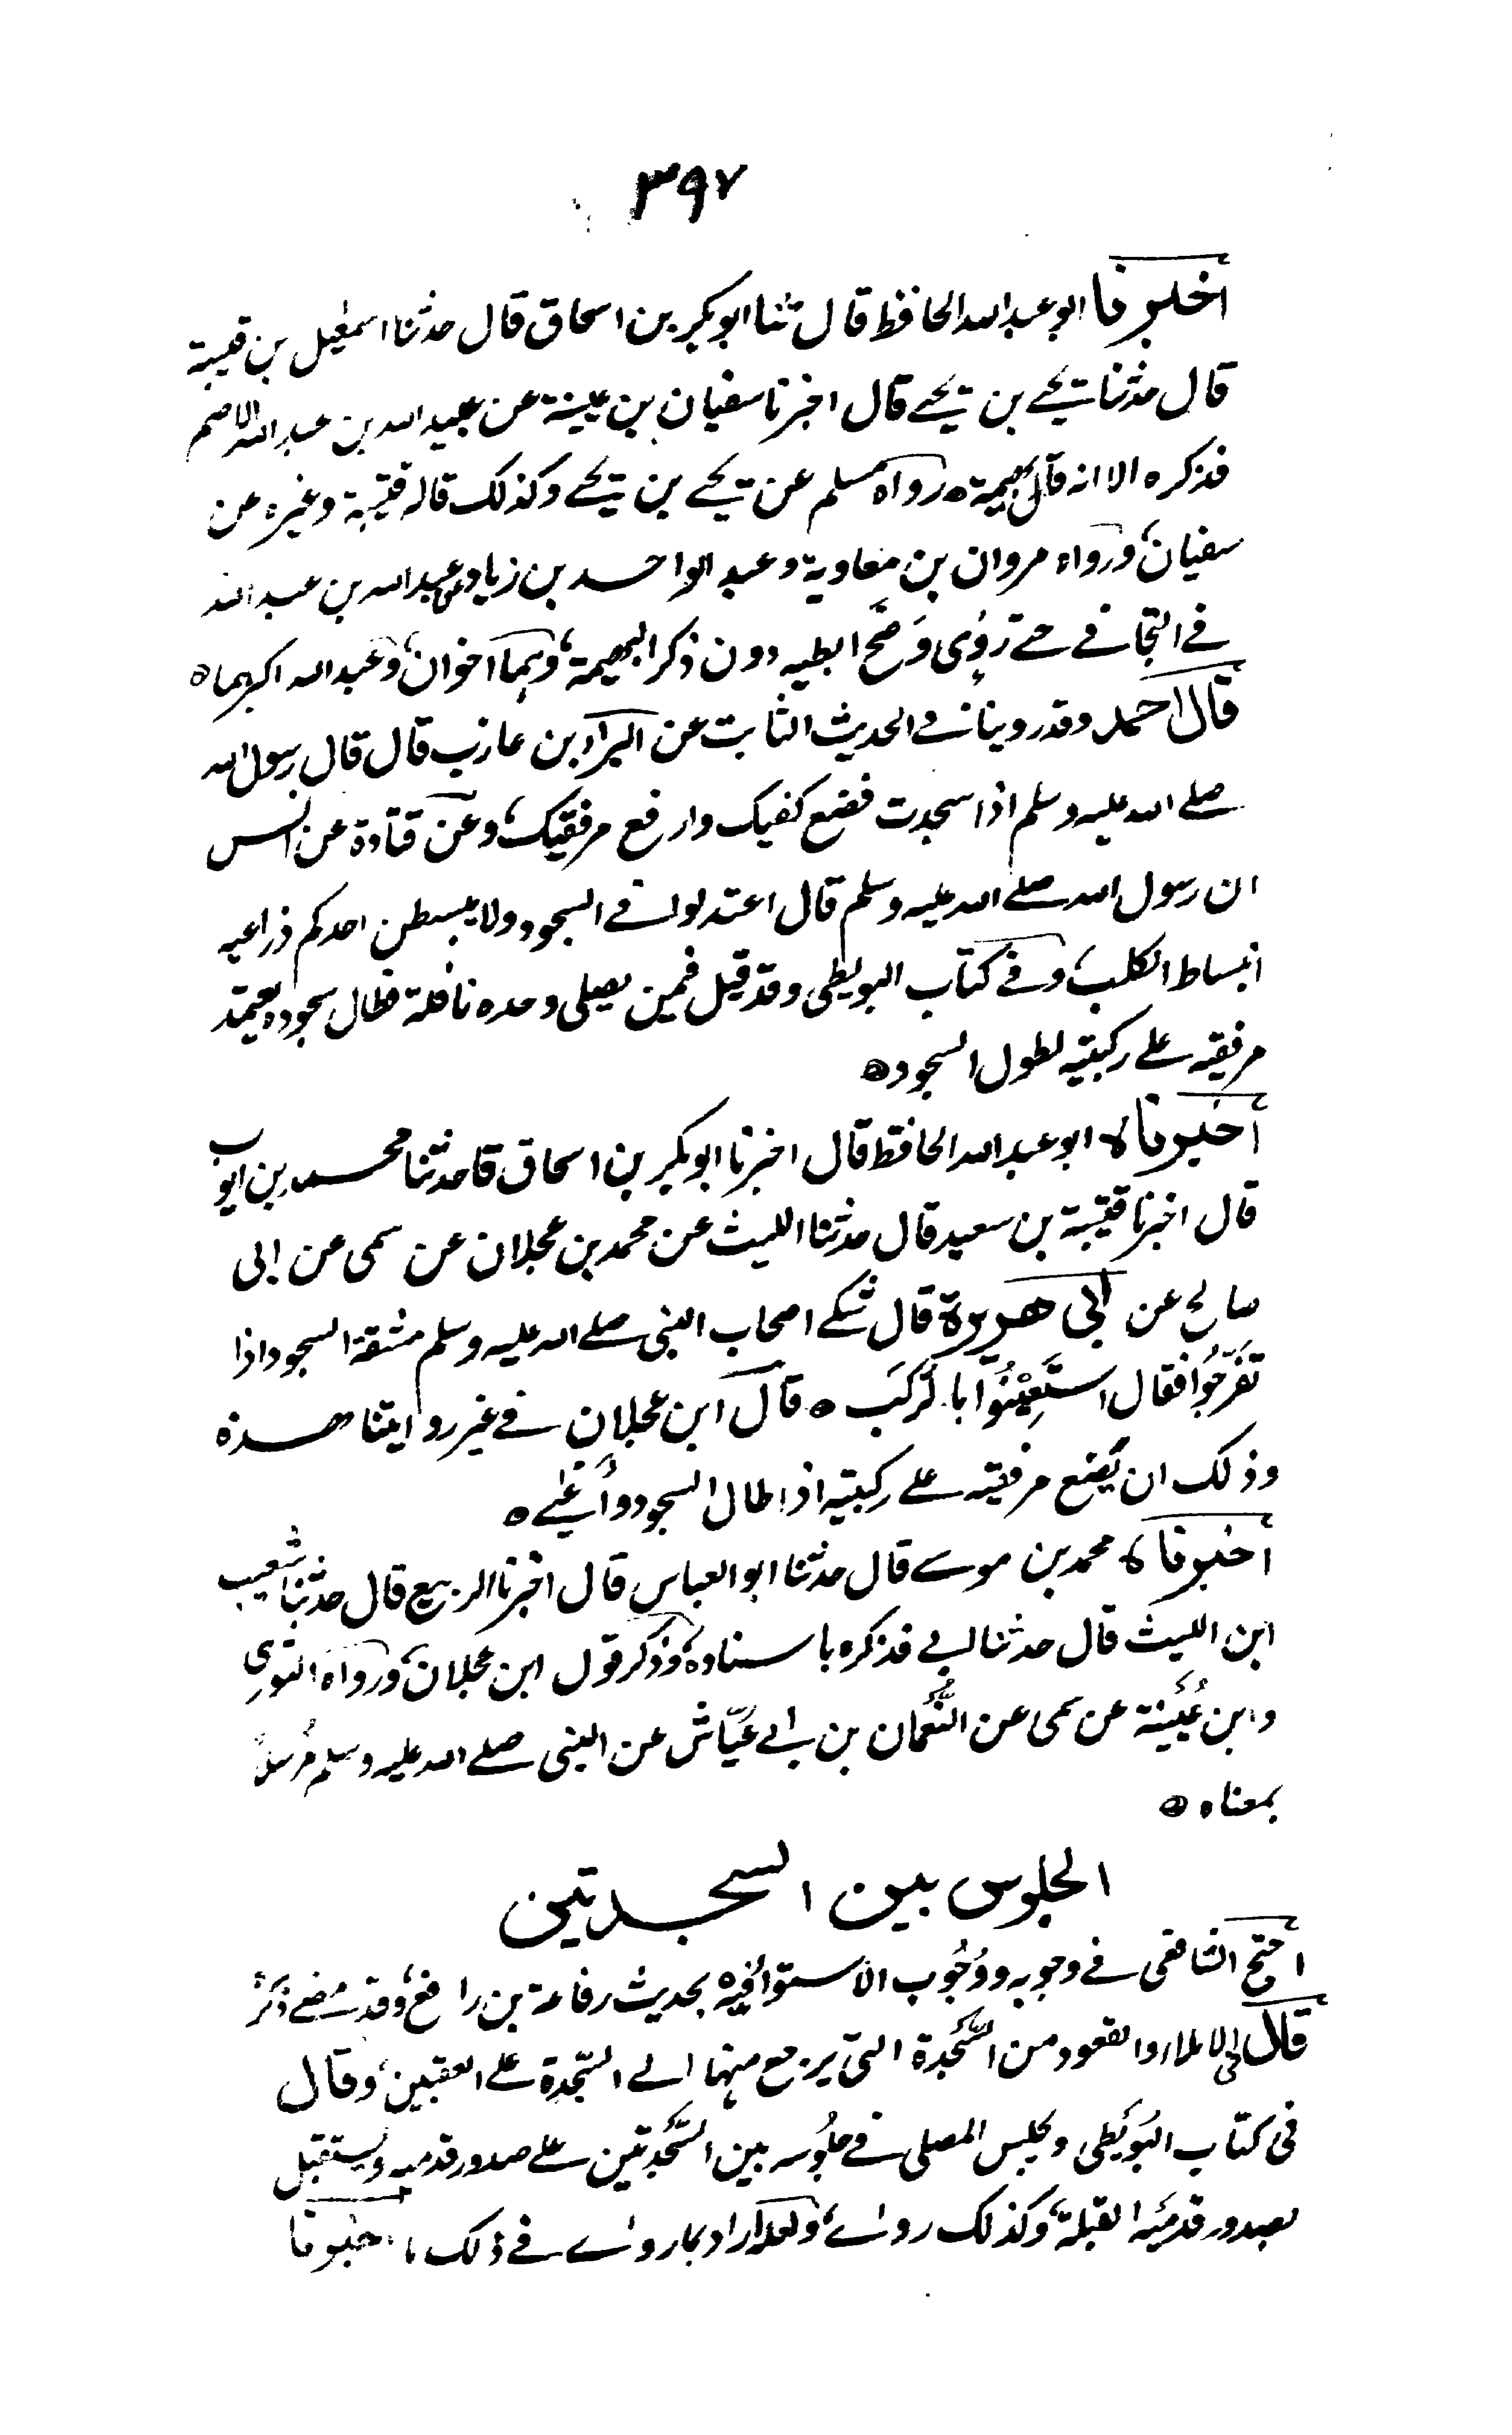 ٣٩٧
أخبرنا ابو عبد الله الحافظ قال ثنا ابو بكر بن اسحاق قال حدثنا اسمعيل بن قتيبة
قال حدثنا يحيے بن يحيے قال اخبرنا سفيان بن عيينة عن عبيد الله بن عبد الله الاصم
فذكره الا انه قال بهيمة ه رواه مسلم عن يحيے بن يحيے وكذلك قاله قتيبة وغيره عن
سفيان، ورواه مروان بن معاوية وعبد الواحد بن زياد عن عبد الله بن عبد الله
فے التجافے حتے رؤى وَضَح ابطيه دون ذكر البهيمة، وهما اخوان، وعبد الله اكبرهما ه
قال احمد وقد روينا فے الحديث الثابت عن البراء بن عازب قال قال رسول الله
صلے الله عليه وسلم اذا سجدت فضع كفيك وارفع مرفقيك، وعن قتادة عن انس
ان رسول الله صلے الله عليه وسلم قال اعتدلوا فے السجود ولا يبسطن احدكم ذراعيه
انبساط الكلب، وفے كتاب البويطى وقد قيل فمين يصلى وحده نافلة فطال سجوده يعتمد
مرفيقه علے ركبتيه لطول السجود ه
أخبرناه ابو عبد الله الحافظ قال اخبرنا ابو بكر بن اسحاق قا حدثنا محمد بن ايوب
قال اخبرنا قتيبة بن سعيد قال حدثنا الليث عن محمد بن عجلان عن سمى عن ابى
صالح عن ابى هريرة قال شكے اصحاب النبى صلے الله عليه وسلم مشقة السجود اذا
تَفَرَّجُوا فقال اسْتَعِيْنُوْا بالرُّكَبِ ه قال ابن عجلان فے غير روايتنا هذه
وذلك ان يَضع مرفقيه علے ركبتيه اذا طال السجود وأعيے ه
أخبرناه محمد بن موسے قال حدثنا ابو العباس قال اخبرنا الربيع قال حدثنا شعيب
ابن الليث قال حدثنا ابے فذكره باسناده، وذكر قول ابن عجلان، ورواه الثورى
وابن عُيَينة عن سمى عن النُّعمان بن ابے عَيّاش عن النبى صلے الله عليه وسلم مُرسلاً
بمعناه ه
الجلوس بين السجدتين
احتج الشافعى فے وجوبه ووُجُوب الاستواء فيه بحديث رفاعة بن رافع، وقد مضے ذكره
قال فى الاملاء والقعود من السَّجدة التى يرجع منها الے السّجدة علے العقبين، وقال
فى كتاب البُوَيطى ويجلس المصلى فے جلُوسه بين السَّجدتين علے صدور قدميه ويستقبل
بصدور قدمَيه القبلة، وكذلك رواے، ولعله اراد بما رواے فے ذلك ما اخبرنا